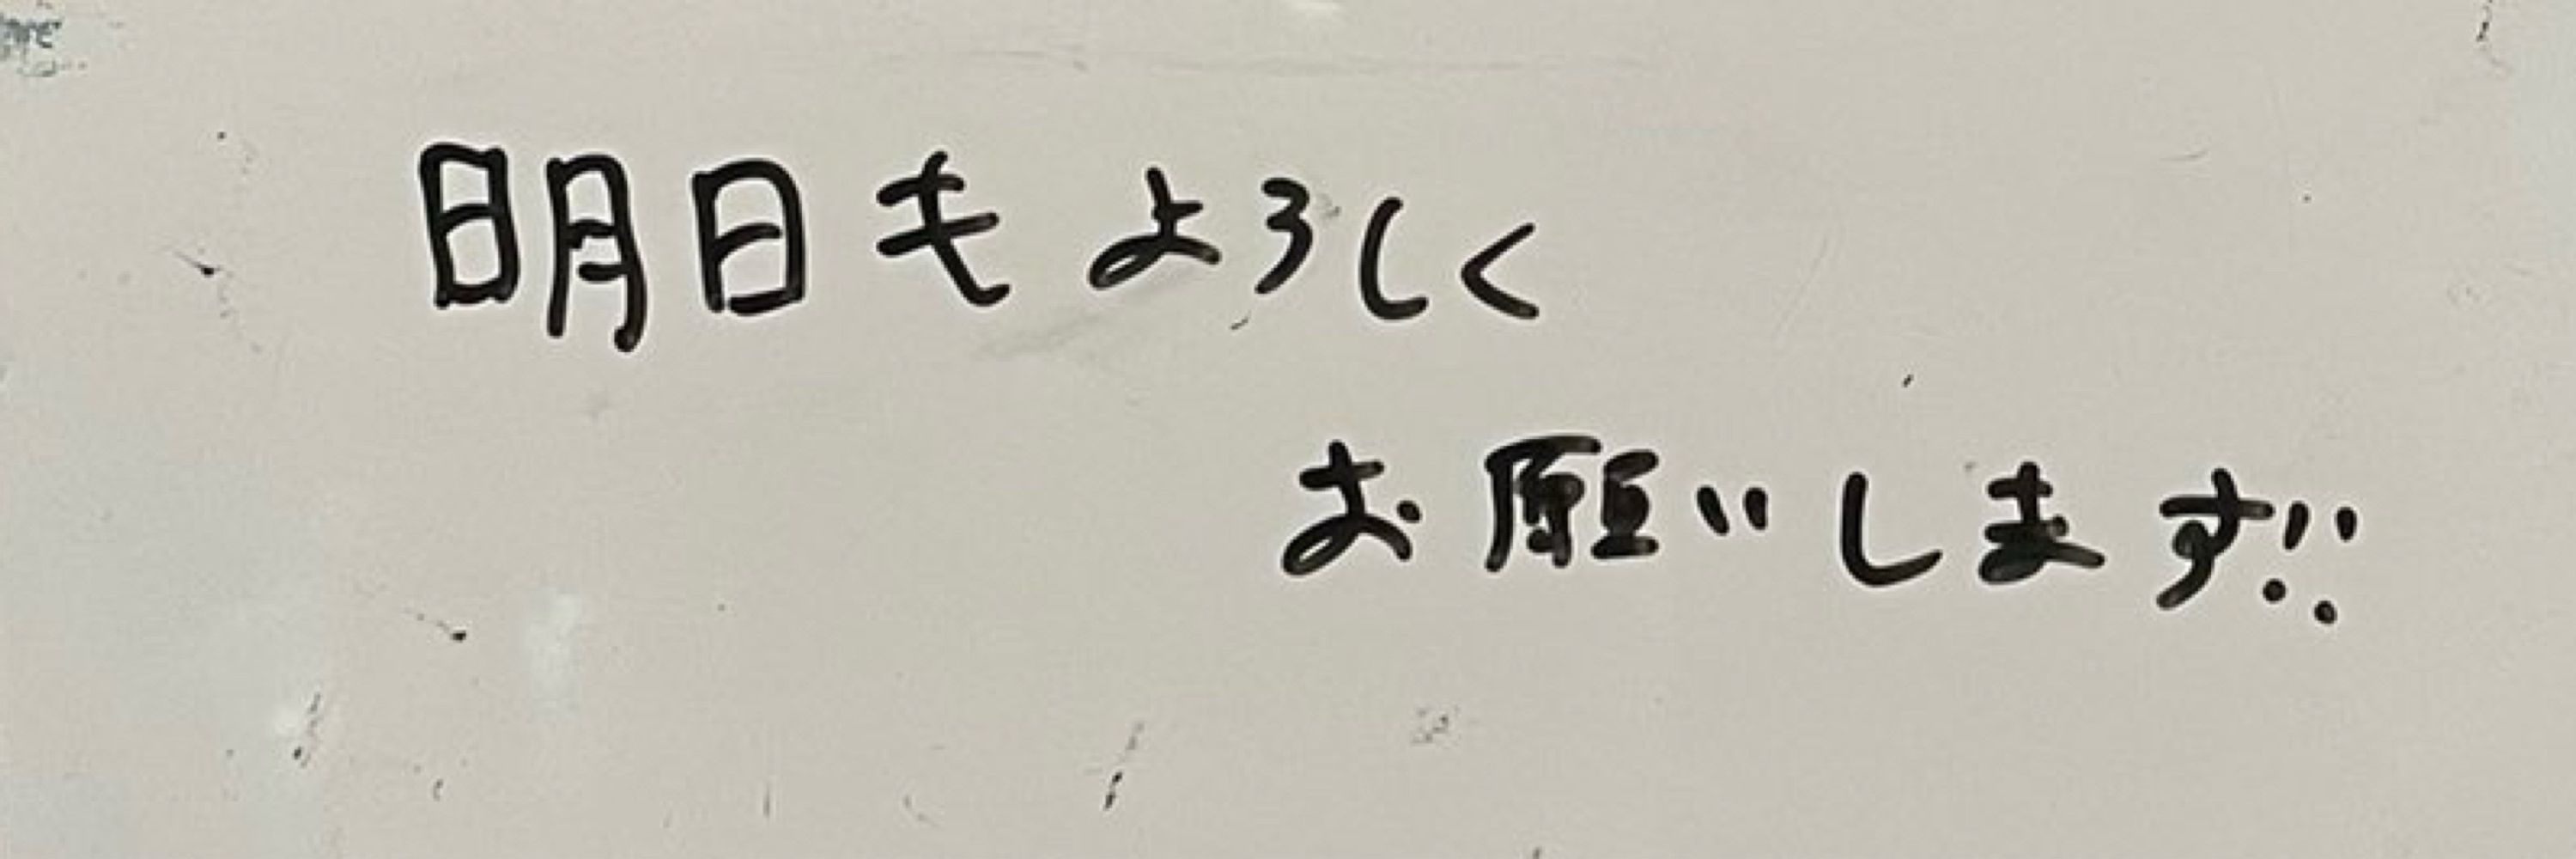 明日もよろしく
お願いします!!